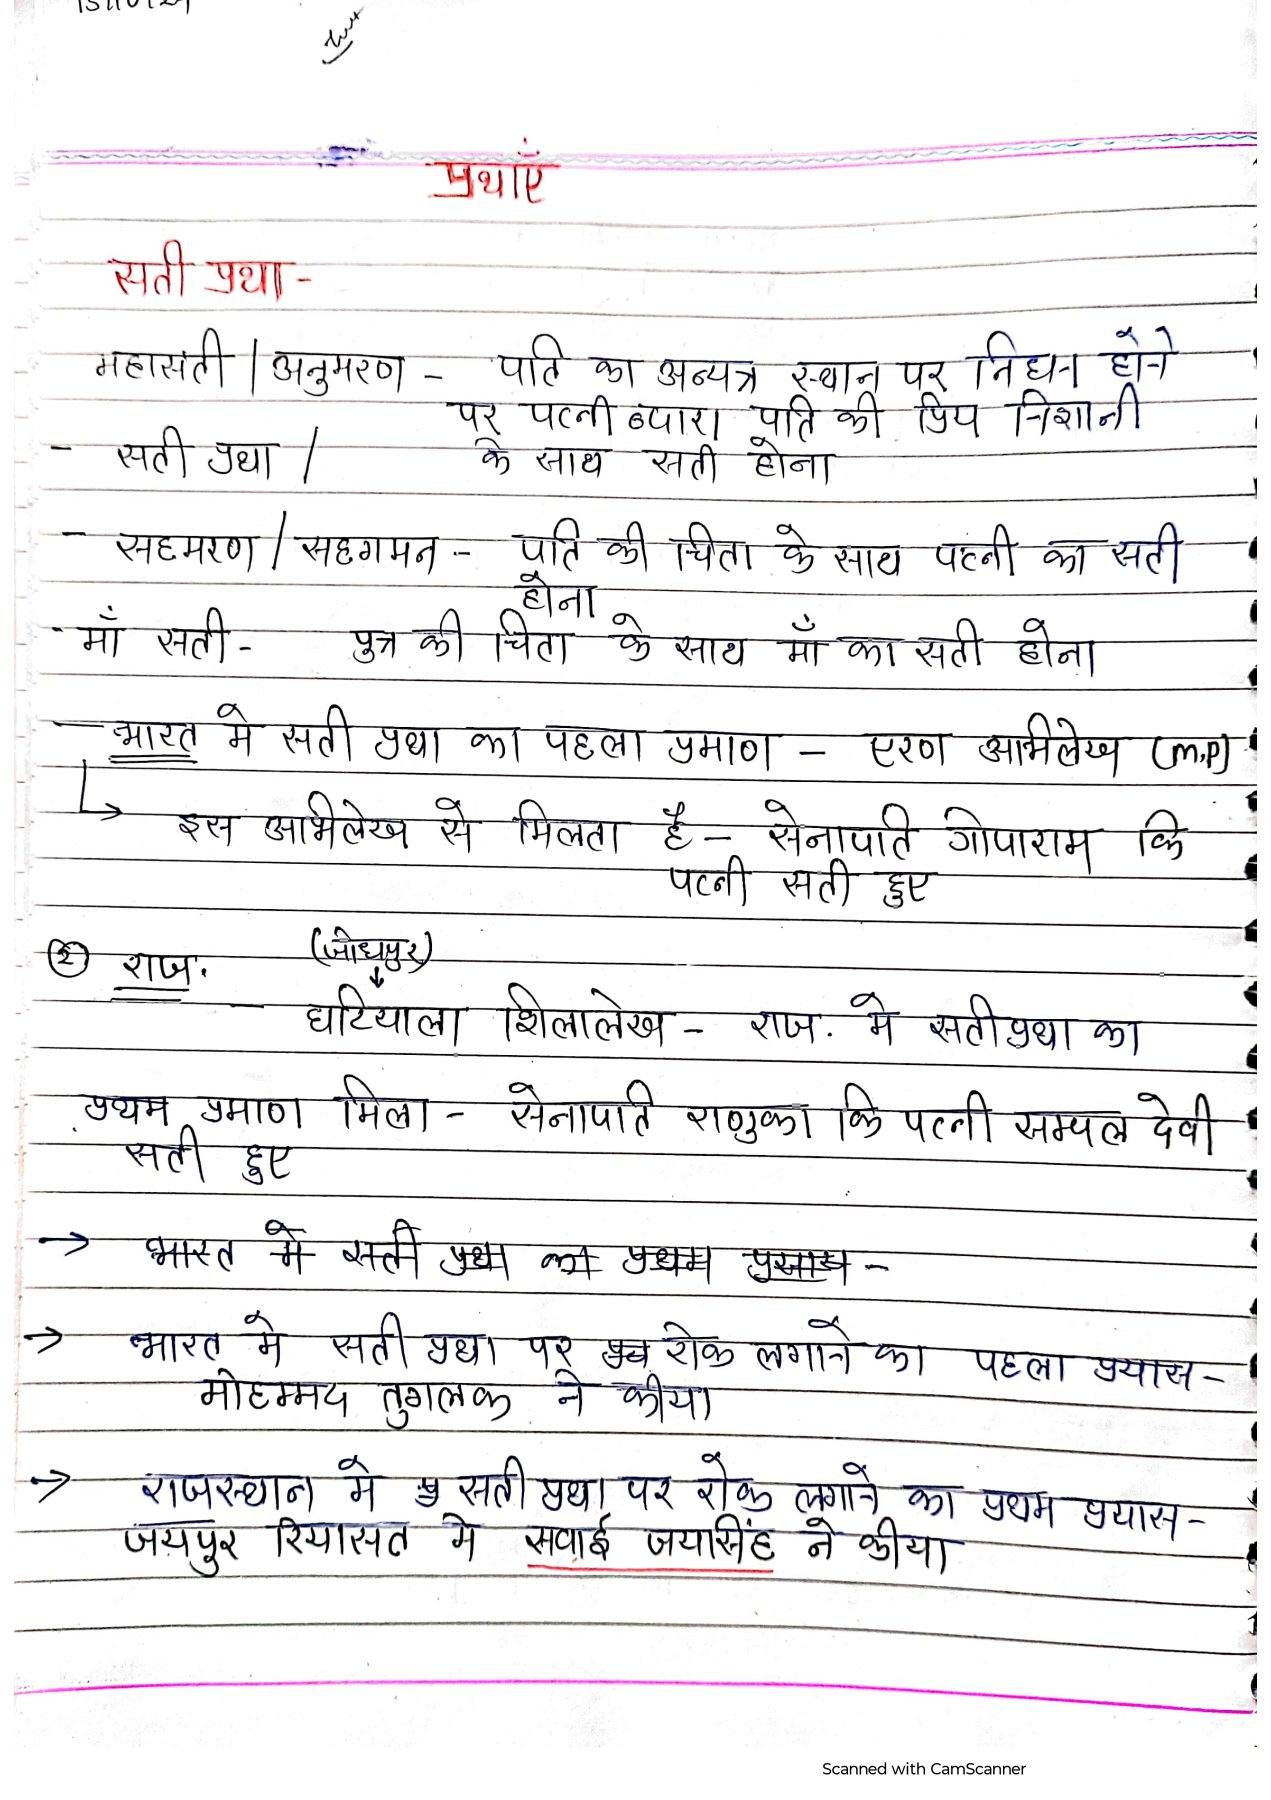 प्रथाएँ
सती प्रथा -
महासती / अनुमरण - पति का अन्यत्र स्थान पर निधन होने
पर पत्नी ब्दारा पति की प्रिय निशानी
- सती प्रथा / के साथ सती होना
- सहमरण / सहगमन - पति की चिता के साथ पत्नी का सती
होना
- माँ सती - पुत्र की चिता के साथ माँ का सती होना
- भारत मे सती प्रथा का पहला प्रमाण - एरण अभिलेख (M.P)
इस अभिलेख से मिलता है - सेनापति गोपाराम कि
पत्नी सती हुए
② राज. (जोधपुर)
- घटियाला शिलालेख - राज. मे सती प्रथा का
प्रथम प्रमाण मिला - सेनापति राणुका कि पत्नी सम्पल देवी
सती हुए
→ भारत मे सती प्रथा का प्रथम -
→ भारत मे सती प्रथा पर रोक लगाने का पहला प्रयास -
मोहम्मद तुगलक ने कीया
→ राजस्थान मे सती प्रथा पर रोक लगाने का प्रथम प्रयास -
जयपुर रियासत मे सवाई जयसिंह ने कीया
Scanned with CamScanner